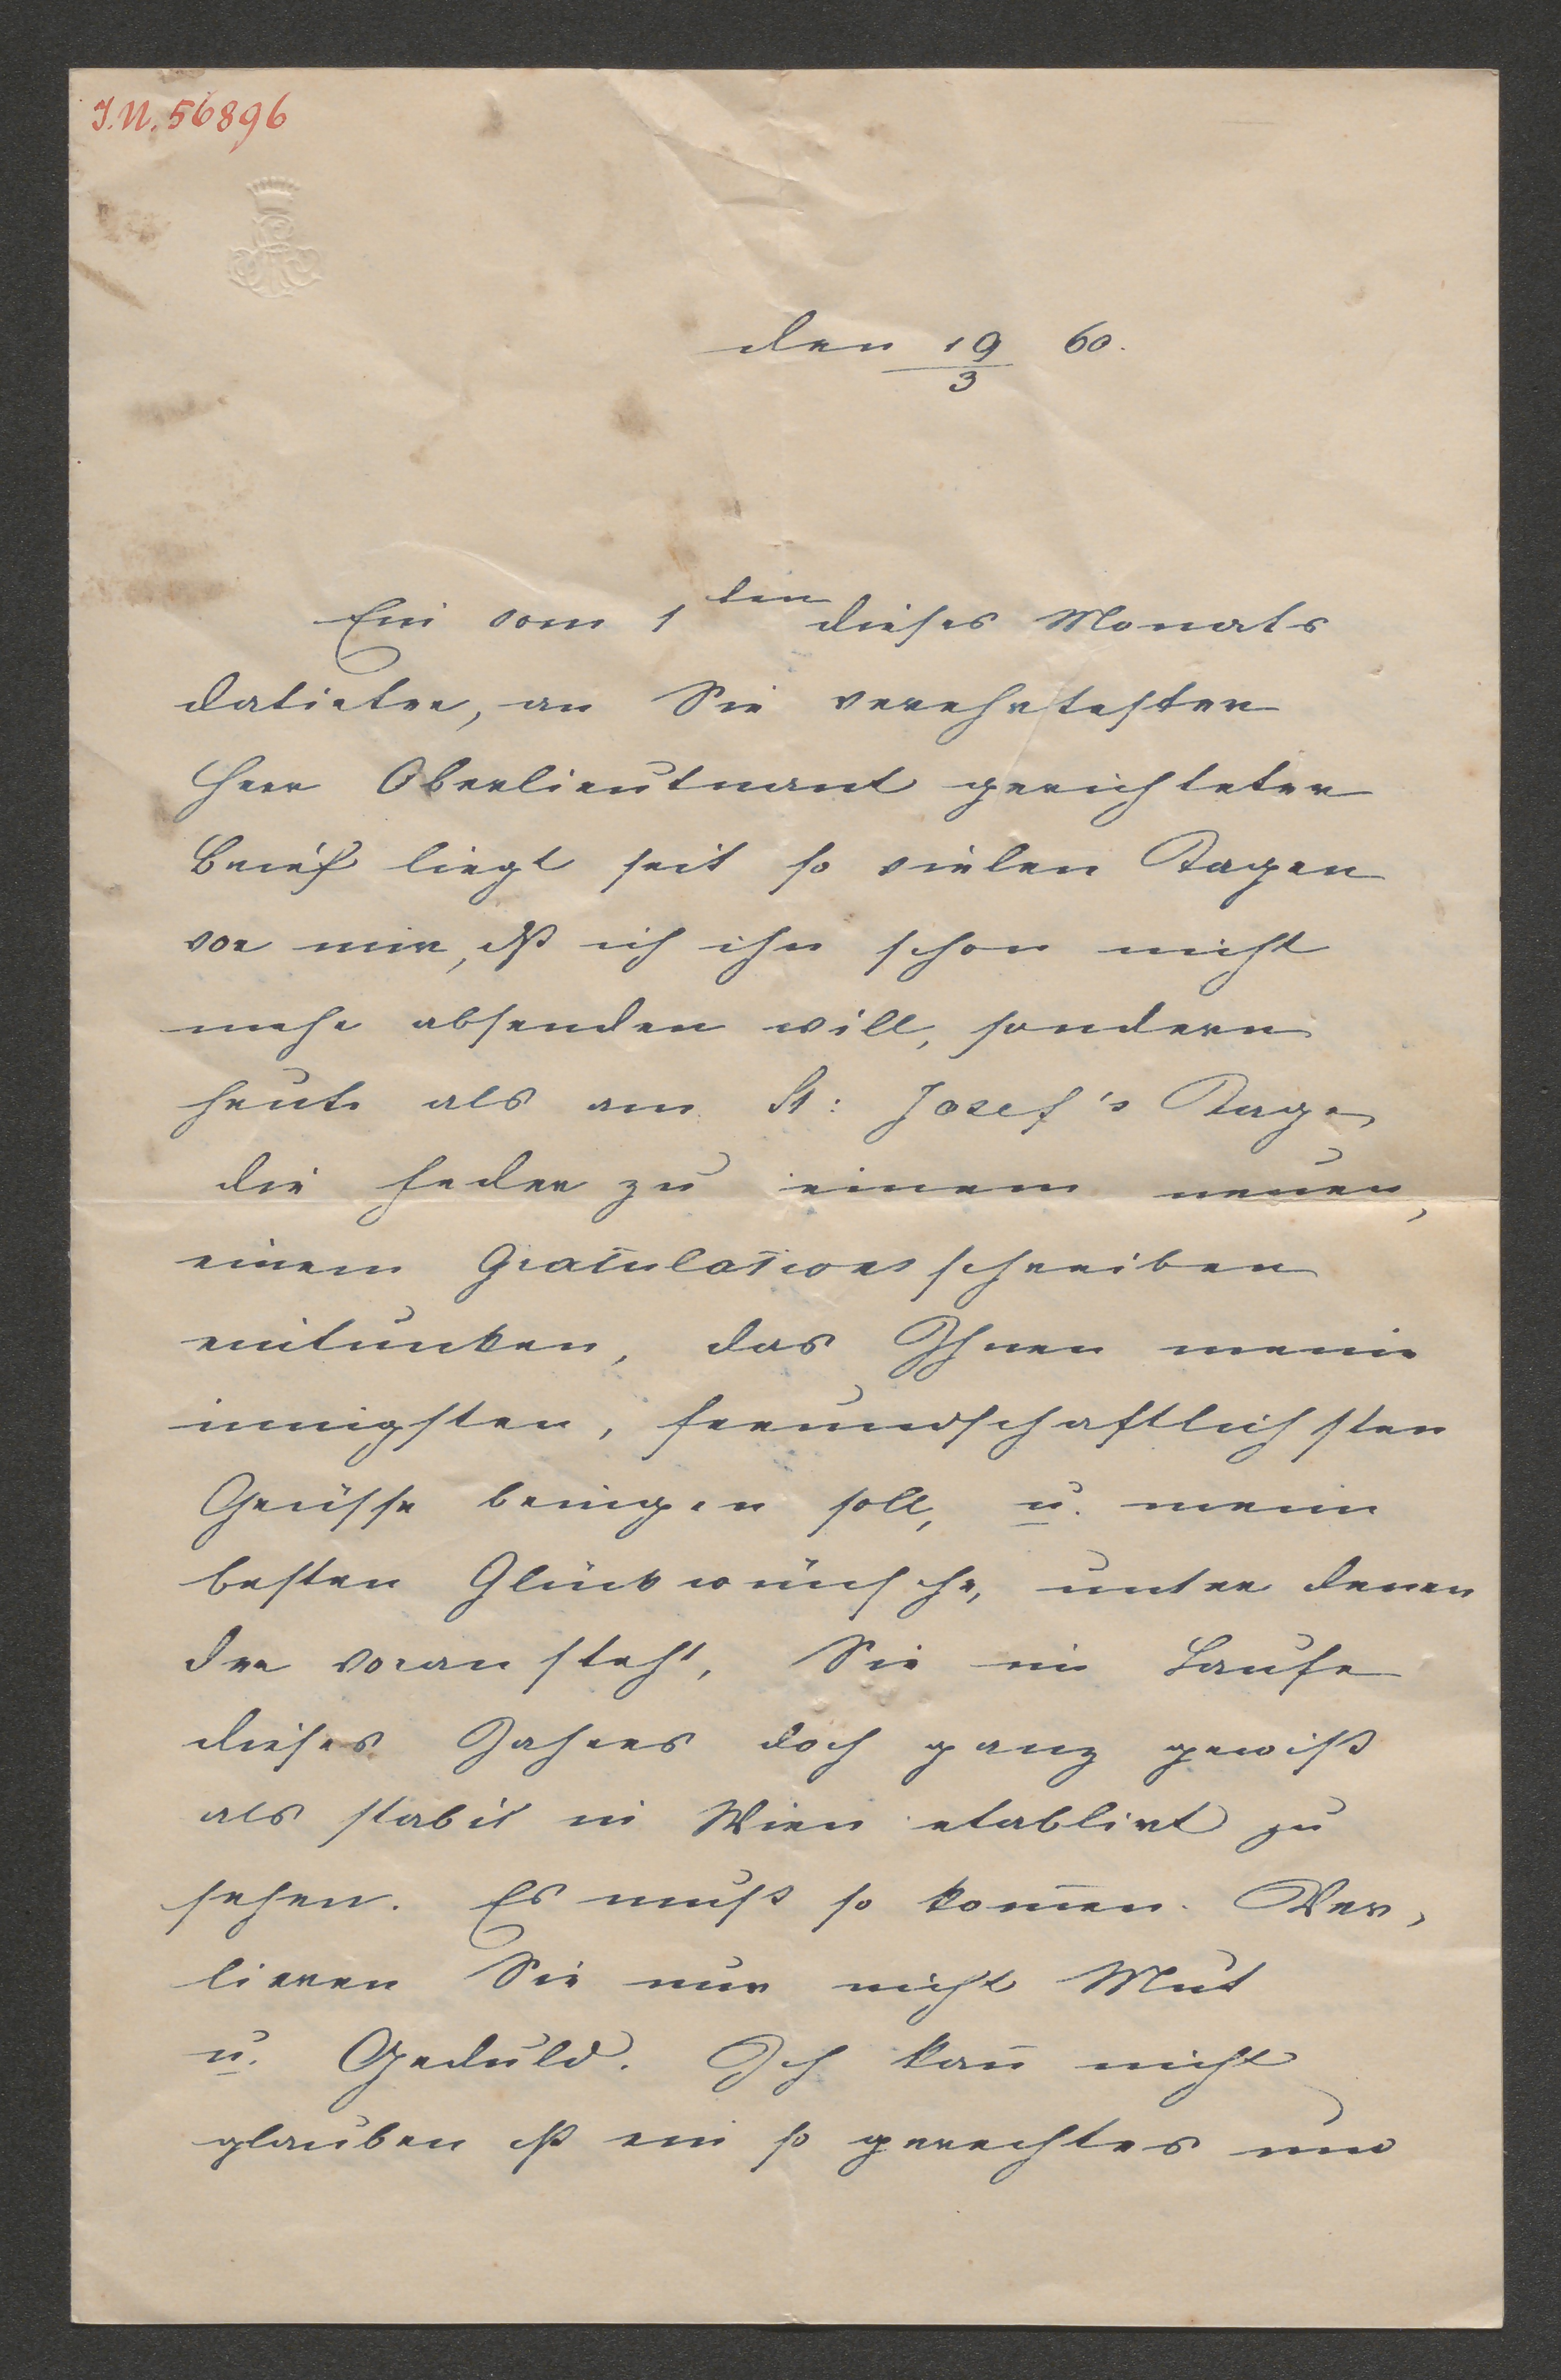 I.N. 56896
den 19/3 60.
Ein vom 1ten dieses Monats
datirter, an Sie verehrtester
Herr Oberlieutnant gerichteter
Brief liegt seit so vielen Tagen
vor mir, dß ich ihn schon nicht
mehr absenden will, sondern
heute als am St: Josef's Tage
die Feder zu einem neuen,
einem Gratulationsschreiben
eintunken, das Ihnen meine
innigsten, freundschaftlichsten
Grüsse bringen soll, u. meine
besten Glückwünsche, unter denen
der voransteht, Sie im Laufe
dieses Jahres doch ganz gewiß
als stabil in Wien etablirt zu
sehen. Es muß so kom̄en. Ver,
lieren Sie nur nicht Mut
u. Geduld. Ich kan̄ nicht
glauben dß ein so gerechtes und